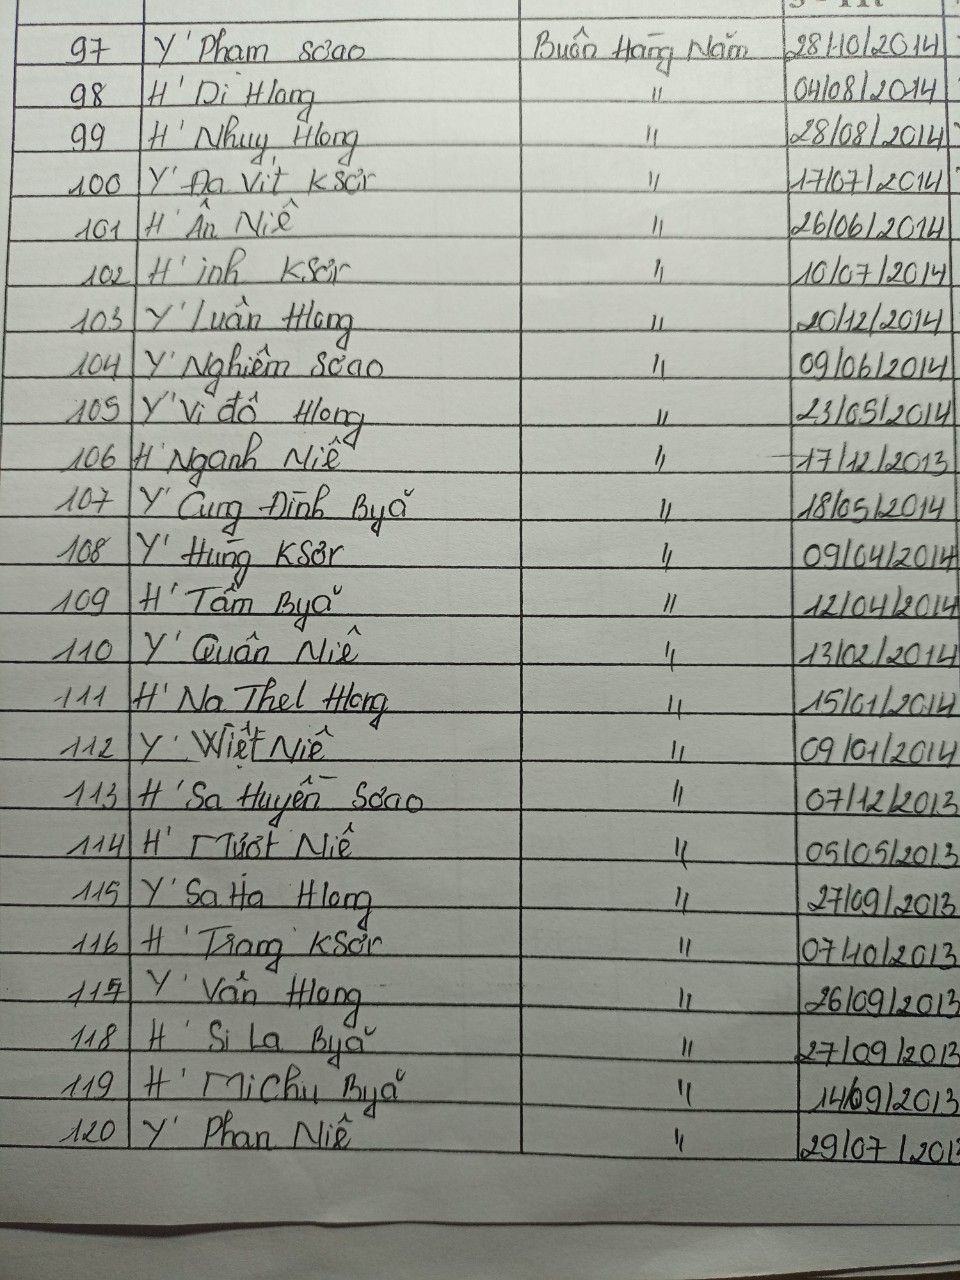 97 Y' Phạm Sơao Buôn Hằng Năm 28/10/2014
98 H' Di Hlong " 04/08/2014
99 H' Nhuỵ Hlong " 28/08/2014
100 Y' Đa Vít KSơr " 17/07/2014
101 H' Ân Niê " 26/06/2014
102 H' inh KSơr " 10/07/2014
103 Y' Luân Hlong " 20/12/2014
104 Y' Nghiêm Sơao " 09/06/2014
105 Y' Vi đô Hlong " 23/05/2014
106 H' Nganh Niê " 17/12/2013
107 Y' Cung Đình Byă " 18/05/2014
108 Y' Hùng KSơr " 09/04/2014
109 H' Tâm Byă " 12/04/2014
110 Y' Quân Niê " 13/02/2014
111 H' Na Thel Hlong " 15/01/2014
112 Y' Wiết Niê " 09/01/2014
113 H' Sa Huyền Sơao " 07/12/2013
114 H' Mượt Niê " 05/05/2013
115 Y' Sa Ha Hlong " 27/09/2013
116 H' Trang KSơr " 07/10/2013
117 Y' Vấn Hlong " 26/09/2013
118 H' Si La Byă " 27/09/2013
119 H' Mi Chu Byă " 14/09/2013
120 Y' Phan Niê " 29/07/2013